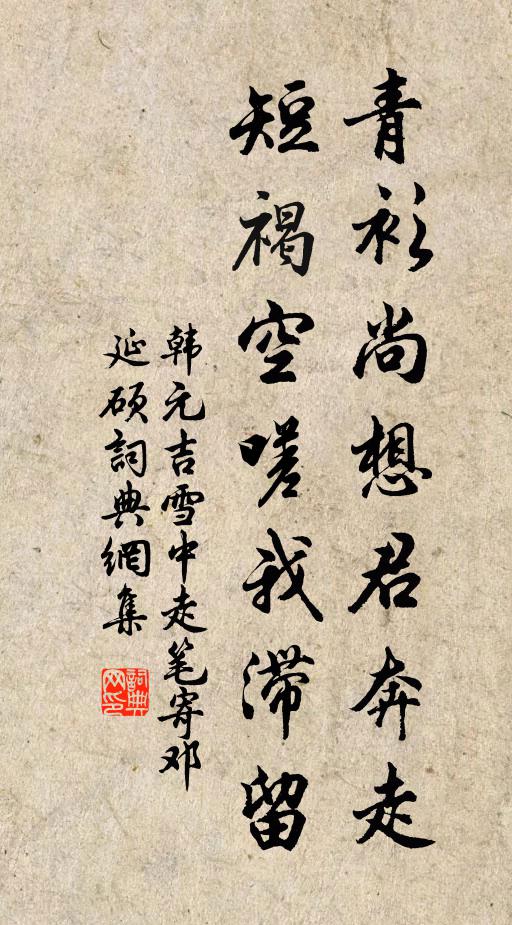 青衫尚想君奔走
短褐空嗟我滞留
韩元吉雪中走笔寄邓
延硕詞典網集
詞典
网印